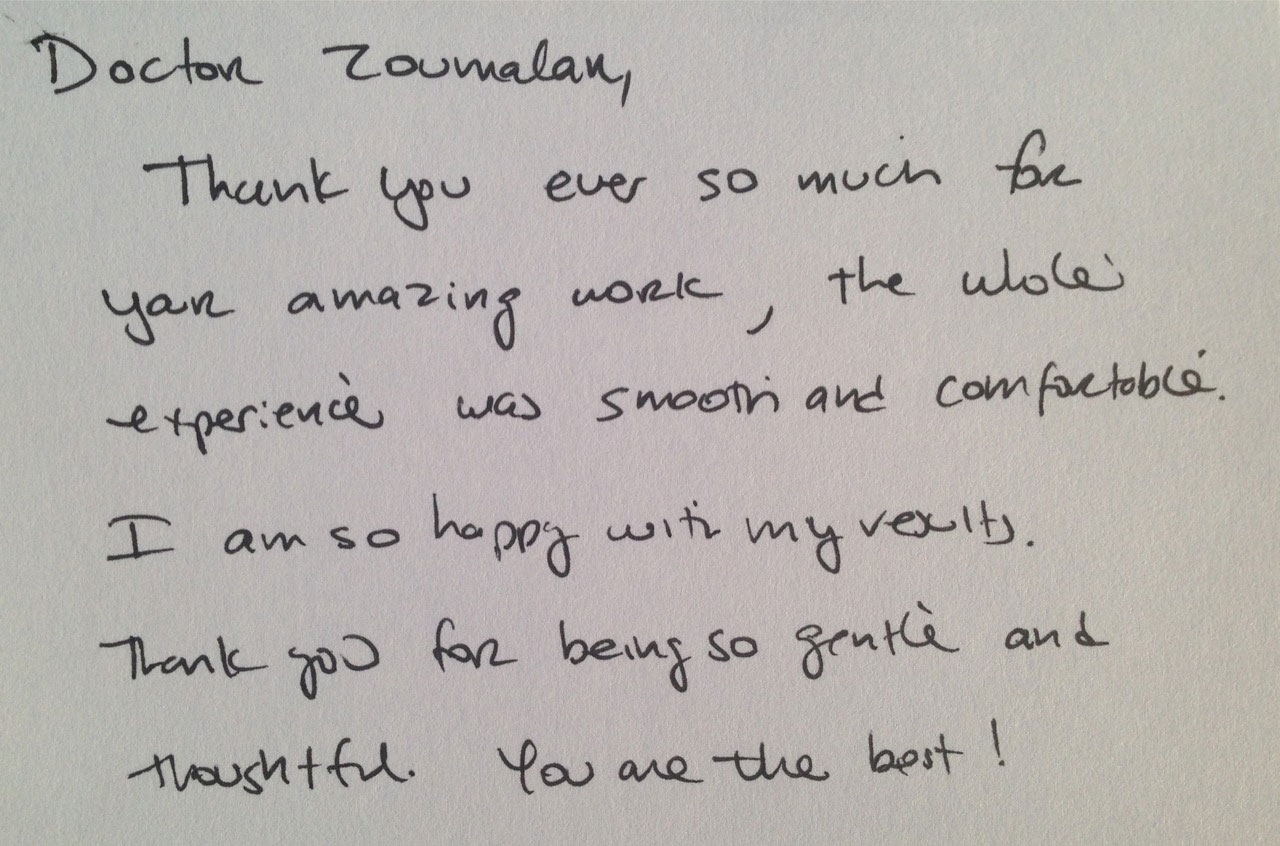 Doctor Zoumalan,
Thank you ever so much for
your amazing work, the whole
experience was smooth and comfortable.
I am so happy with my results.
Thank you for being so gentle and
thoughtful. You are the best!